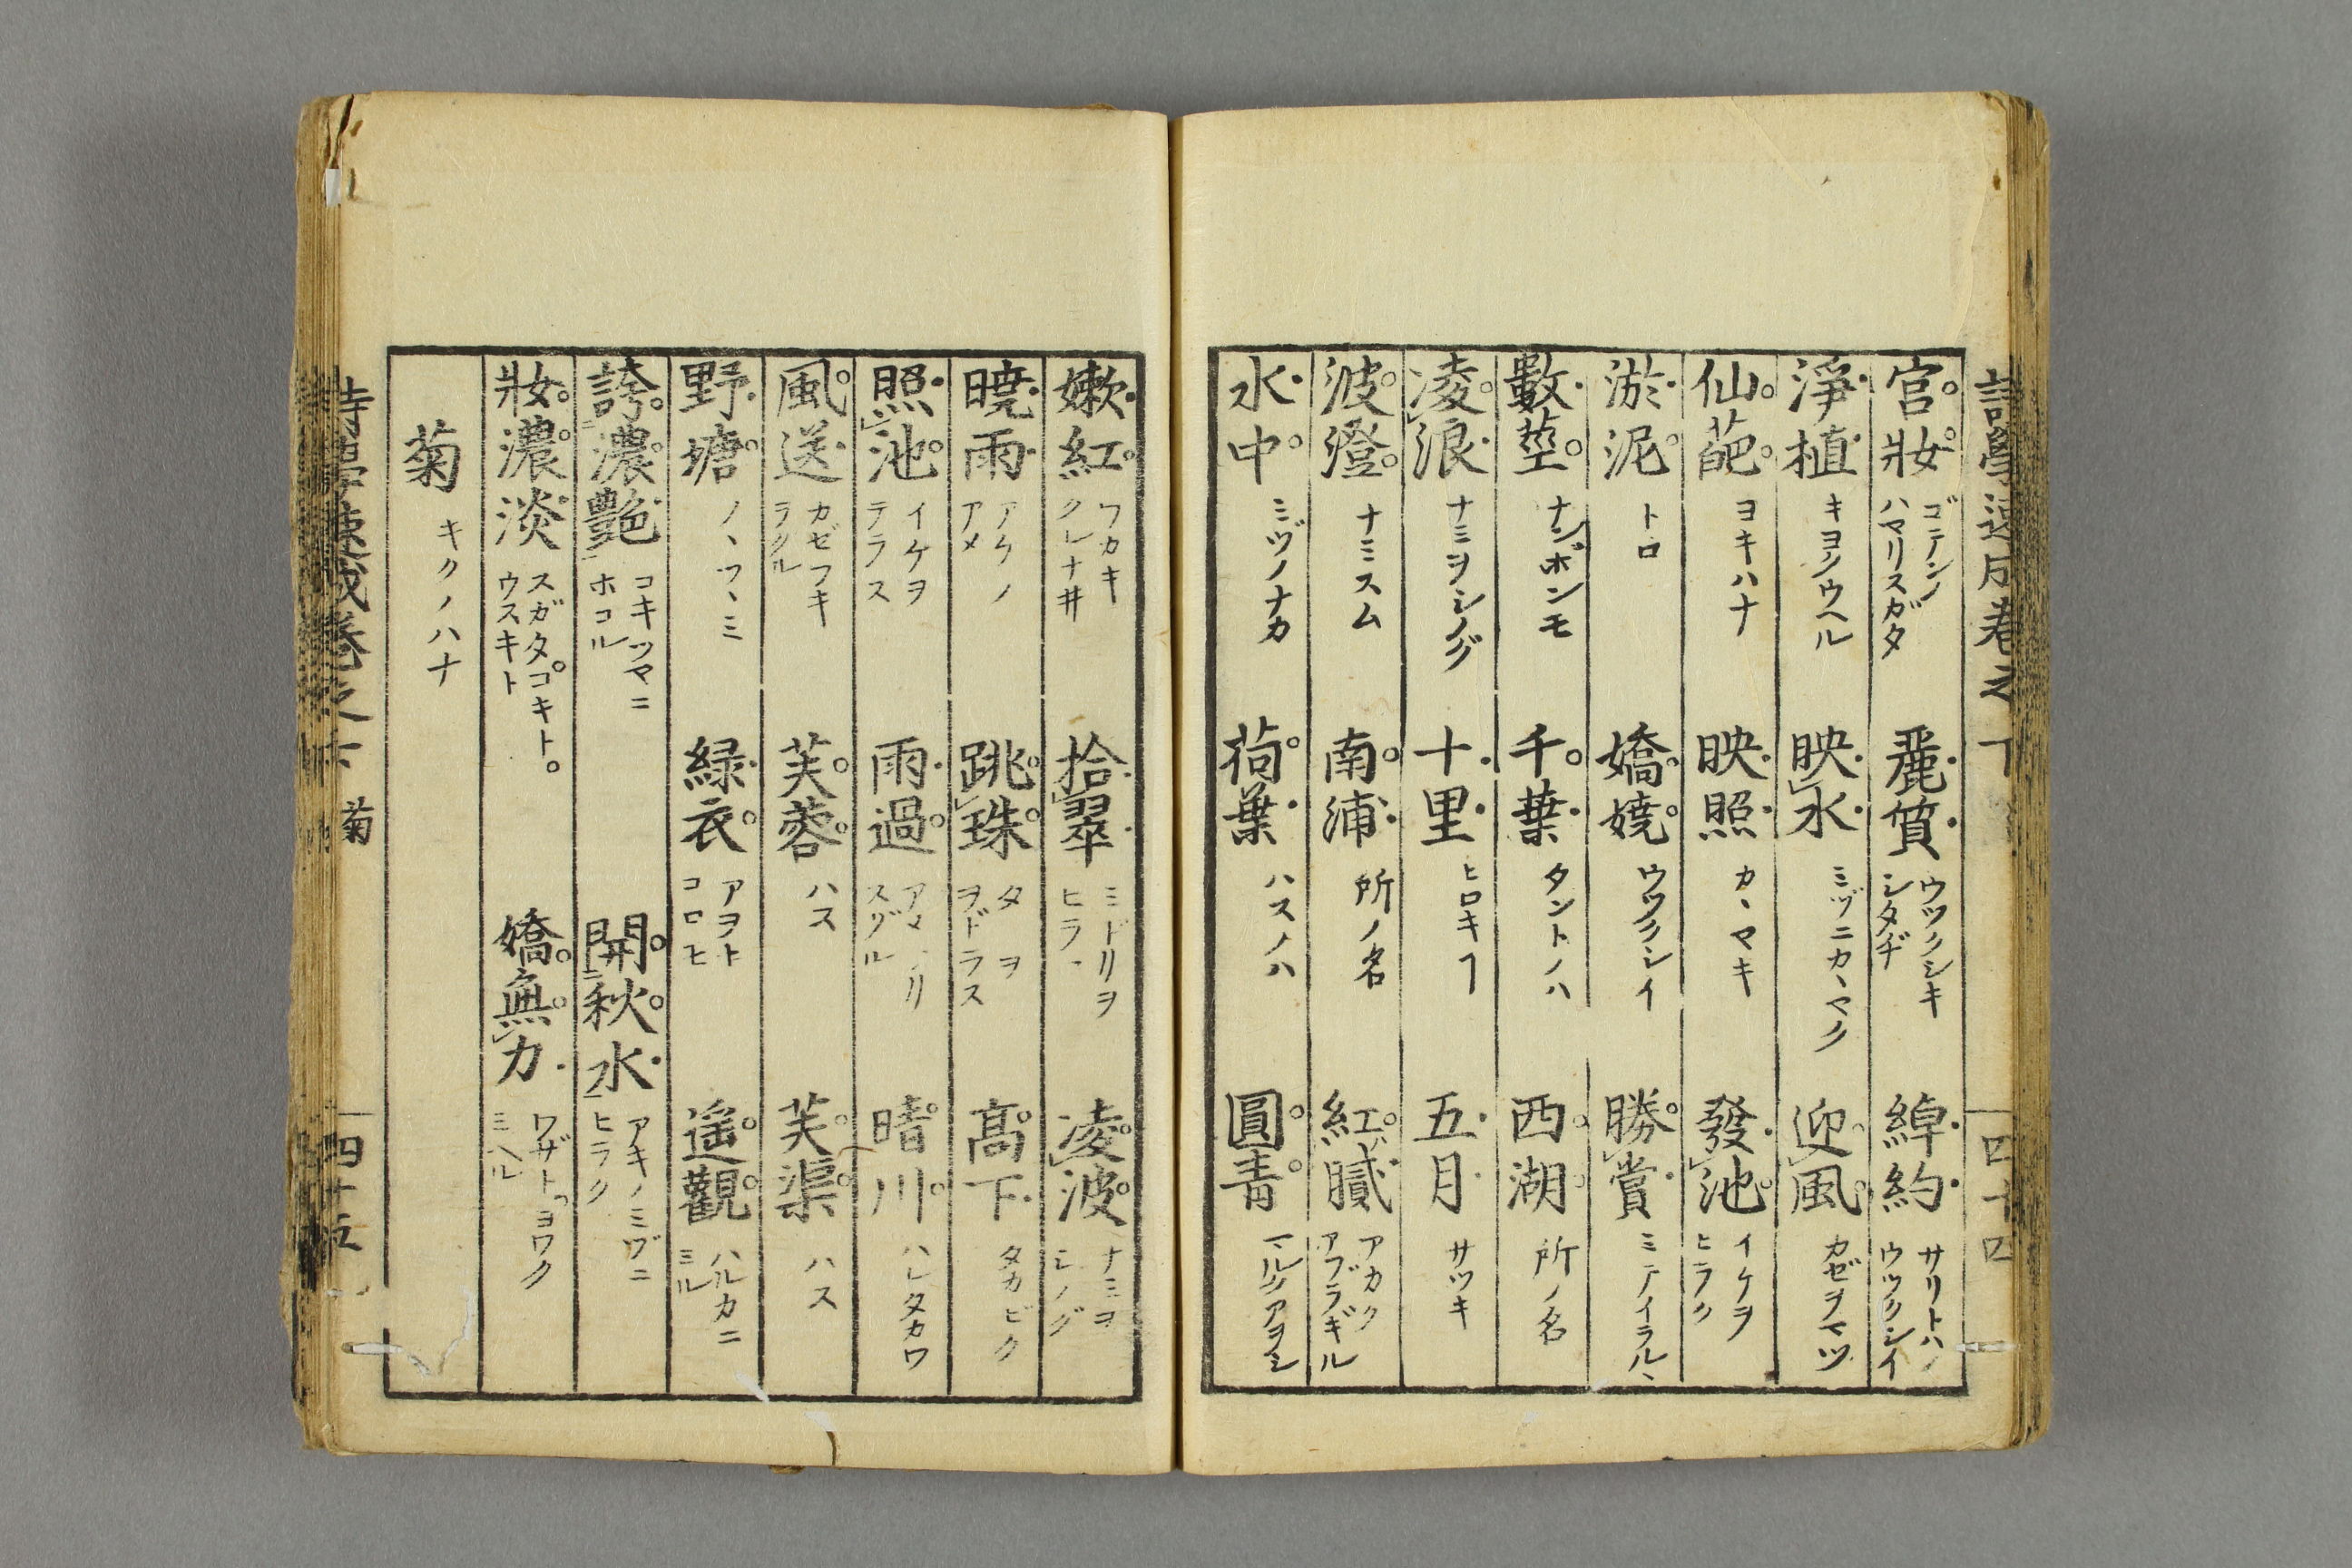 宮妝 ゴテンノハマリスガタ 麗質 ウツクシキシタヂ 綽約 サリトハノウツクシイ
淨植 キヨクウヘル 映水 ミヅニカヽヤク 迎風 カゼヲマツ
仙葩 ヨキハナ 映照 カヽヤキ 發池 イケヲヒラク
淤泥 トロ 嬌嬈 ウツクシイ 勝賞 ミテイラルヽ
數莖 ナンボンモ 千葉 タントノハ 西湖 所ノ名
凌浪 ナミヲシノグ 十里 ヒロキ 五月 サツキ
波澄 ナミスム 南浦 所ノ名 紅膩 アカクアブラギル
水中 ミヅノナカ 荷葉 ハスノハ 圓青 マルクアヲシ
嫰紅 ワカキクレナ井 拾翠 ミドリヲヒラ 凌波 ナミヲシノグ
曉雨 アケノアメ 跳珠 タヲヲドラス 高下 タカビク
照池 イケヲテラス 雨過 スグル 晴川 ハレタカワ
風送 カゼフキラクル 芙蓉 ハス 芙渠 ハス
野塘 ノヽツヽミ 緑衣 アヲトコロモ 遥觀 ハルカニミル
誇濃艶 コキツマニホコル 開秋水 アキノミヅニヒラク
妝濃淡 スガタ。コキト。ウスキト 嬌無力 ワザトヨワクミヘル
菊 キクノハナ
菊
四十五